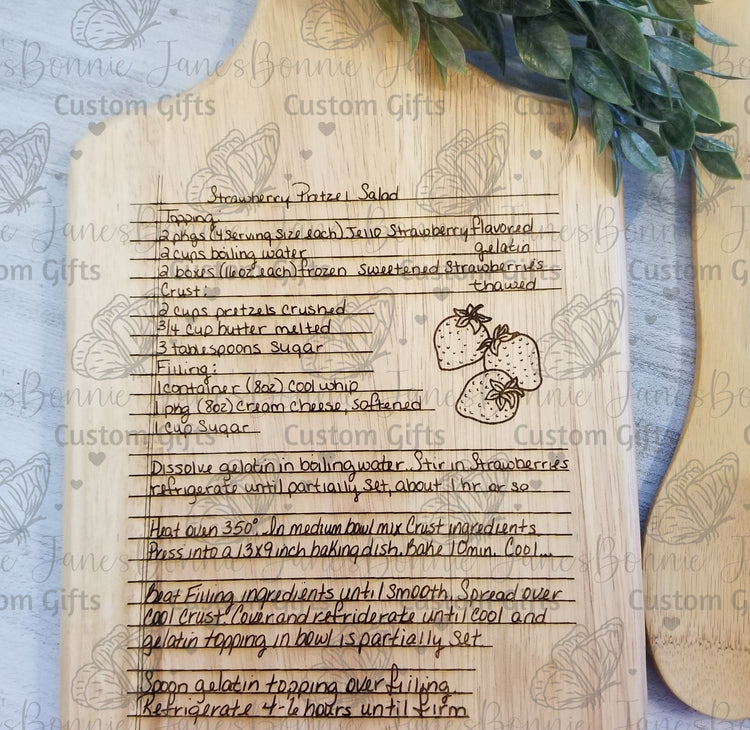 Strawberry Pretzel Salad
Topping:
2 pkgs (4 serving size each) Jello Strawberry flavored
2 cups boiling water gelatin
2 boxes (16oz each) frozen sweetened Strawberries
Crust: thawed
2 cups pretzels crushed
3/4 cup butter melted
3 tablespoons sugar
Filling:
1 container (8oz) cool whip
1 pkg (8oz) cream cheese, softened
1 cup sugar
Dissolve gelatin in boiling water. Stir in Strawberries
refrigerate until partially set, about 1 hr or so
Heat oven 350°. In medium bowl mix Crust ingredients
Press into a 13x9 inch baking dish. Bake 10 min. Cool...
Beat Filling ingredients until smooth. Spread over
cool crust. Cover and refriderate until cool and
gelatin topping in bowl is partially set
Spoon gelatin topping over filling
Refrigerate 4-6 hours until firm
Bonnie Jane's
Custom Gifts